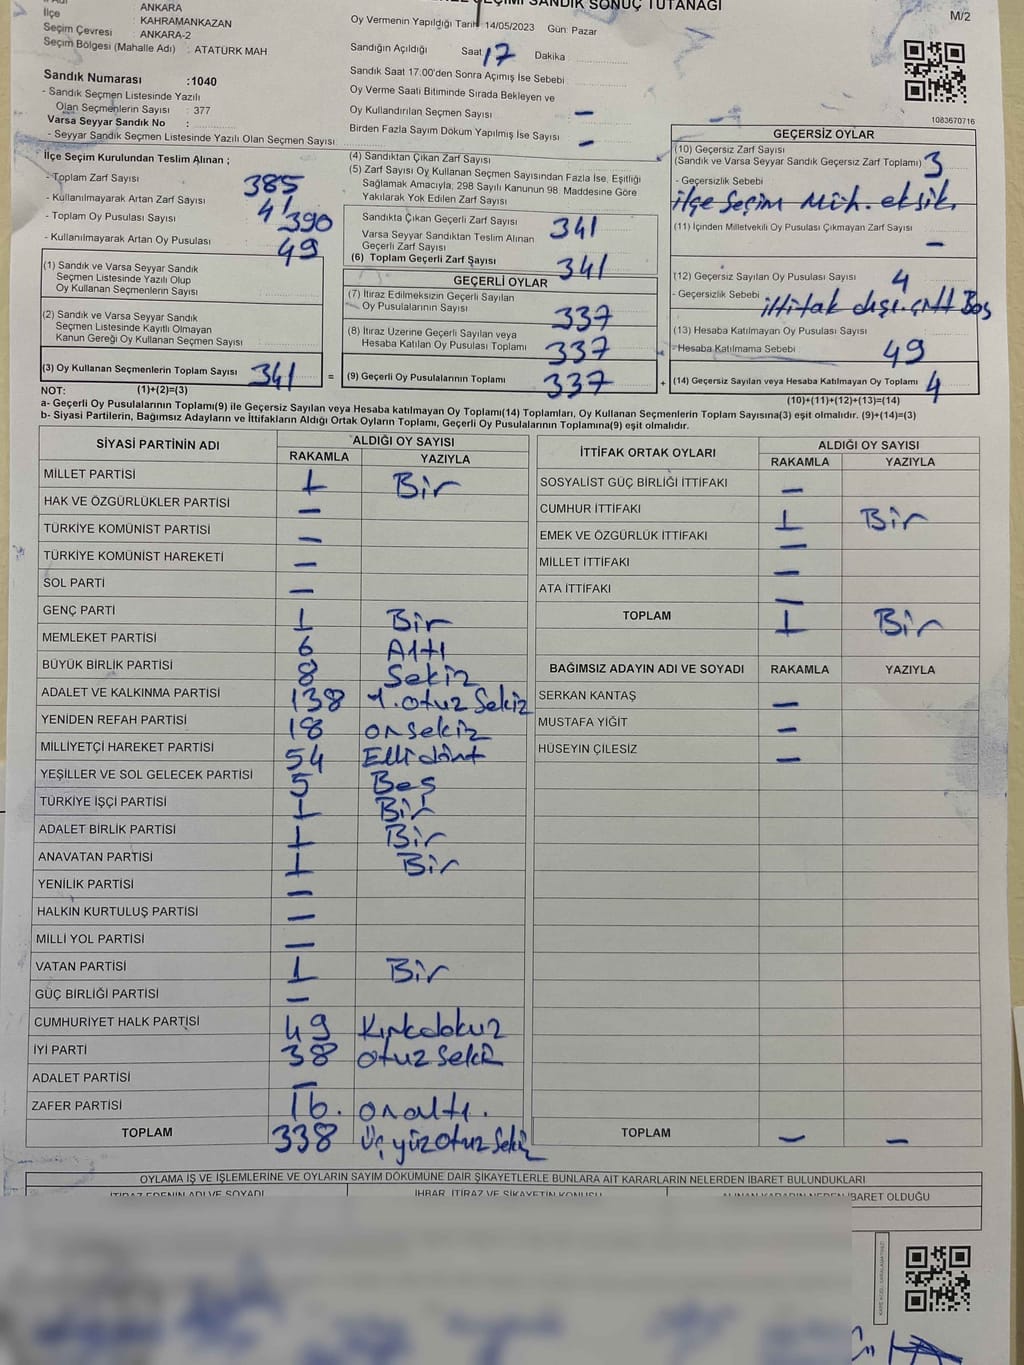 SEÇİMİ SANDIK SONUÇ TUTANAĞI
M/2
İl Adı ANKARA
İlçe : KAHRAMANKAZAN
Seçim Çevresi : ANKARA-2
Seçim Bölgesi (Mahalle Adı) : ATATÜRK MAH
Sandık Numarası :1040
- Sandık Seçmen Listesinde Yazılı
Olan Seçmenlerin Sayısı : 377
Varsa Seyyar Sandık No :
- Seyyar Sandık Seçmen Listesinde Yazılı Olan Seçmen Sayısı
Oy Vermenin Yapıldığı Tarih 14/05/2023 Gün: Pazar
Sandığın Açıldığı Saat 17 Dakika
Sandık Saat 17:00'den Sonra Açımış İse Sebebi
Oy Verme Saati Bitiminde Sırada Bekleyen ve
Oy Kullandırılan Seçmen Sayısı —
Birden Fazla Sayım Döküm Yapılmış İse Sayısı —
1083670716
İlçe Seçim Kurulundan Teslim Alınan ;
- Toplam Zarf Sayısı 385
- Kullanılmayarak Artan Zarf Sayısı 41
- Toplam Oy Pusulası Sayısı 390
- Kullanılmayarak Artan Oy Pusulası 49
(1) Sandık ve Varsa Seyyar Sandık
Seçmen Listesinde Yazılı Olup
Oy Kullanan Seçmenlerin Sayısı
(2) Sandık ve Varsa Seyyar Sandık
Seçmen Listesinde Kayıtlı Olmayan
Kanun Gereği Oy Kullanan Seçmen Sayısı
(3) Oy Kullanan Seçmenlerin Toplam Sayısı 341 =
(4) Sandıktan Çıkan Zarf Sayısı
(5) Zarf Sayısı Oy Kullanan Seçmen Sayısından Fazla İse, Eşitliği
Sağlamak Amacıyla; 298 Sayılı Kanunun 98. Maddesine Göre
Yakılarak Yok Edilen Zarf Sayısı
Sandıkta Çıkan Geçerli Zarf Sayısı 341
Varsa Seyyar Sandıktan Teslim Alınan
Geçerli Zarf Sayısı
(6) Toplam Geçerli Zarf Sayısı 341
GEÇERLİ OYLAR
(7) İtiraz Edilmeksizin Geçerli Sayılan
Oy Pusulalarının Sayısı 337
(8) İtiraz Üzerine Geçerli Sayılan veya
Hesaba Katılan Oy Pusulası Toplamı 337
(9) Geçerli Oy Pusulalarının Toplamı 337 +
GEÇERSİZ OYLAR
(10) Geçersiz Zarf Sayısı
(Sandık ve Varsa Seyyar Sandık Geçersiz Zarf Toplamı) 3
- Geçersizlik Sebebi
ilçe Seçim Müh. eksik.
(11) İçinden Milletvekili Oy Pusulası Çıkmayan Zarf Sayısı
—
(12) Geçersiz Sayılan Oy Pusulası Sayısı 4
- Geçersizlik Sebebi ittifak dışı. çift Boş
(13) Hesaba Katılmayan Oy Pusulası Sayısı
- Hesaba Katılmama Sebebi 49
(14) Geçersiz Sayılan veya Hesaba Katılmayan Oy Toplamı 4
NOT: (1)+(2)=(3) (10)+(11)+(12)+(13)=(14)
a- Geçerli Oy Pusulalarının Toplamı(9) ile Geçersiz Sayılan veya Hesaba katılmayan Oy Toplamı(14) Toplamları, Oy Kullanan Seçmenlerin Toplam Sayısına(3) eşit olmalıdır. (9)+(14)=(3)
b- Siyasi Partilerin, Bağımsız Adayların ve İttifakların Aldığı Ortak Oyların Toplamı, Geçerli Oy Pusulalarının Toplamına(9) eşit olmalıdır.
SİYASİ PARTİNİN ADI ALDIĞI OY SAYISI
RAKAMLA YAZIYLA
MİLLET PARTİSİ 1 Bir
HAK VE ÖZGÜRLÜKLER PARTİSİ —
TÜRKİYE KOMÜNİST PARTİSİ —
TÜRKİYE KOMÜNİST HAREKETİ —
SOL PARTİ —
GENÇ PARTİ 1 Bir
MEMLEKET PARTİSİ 6 Altı
BÜYÜK BİRLİK PARTİSİ 8 Sekiz
ADALET VE KALKINMA PARTİSİ 138 Y.otuz Sekiz
YENİDEN REFAH PARTİSİ 18 onsekiz
MİLLİYETÇİ HAREKET PARTİSİ 54 Ellidört
YEŞİLLER VE SOL GELECEK PARTİSİ 5 Beş
TÜRKİYE İŞÇİ PARTİSİ 1 Bir
ADALET BİRLİK PARTİSİ 1 Bir
ANAVATAN PARTİSİ 1 Bir
YENİLİK PARTİSİ —
HALKIN KURTULUŞ PARTİSİ —
MİLLİ YOL PARTİSİ —
VATAN PARTİSİ 1 Bir
GÜÇ BİRLİĞİ PARTİSİ —
CUMHURİYET HALK PARTİSİ 49 Kırkdokuz
İYİ PARTİ 38 otuz Sekiz
ADALET PARTİSİ —
ZAFER PARTİSİ 16. on altı.
TOPLAM 338 üç yüz otuz Sekiz
İTTİFAK ORTAK OYLARI ALDIĞI OY SAYISI
RAKAMLA YAZIYLA
SOSYALİST GÜÇ BİRLİĞİ İTTİFAKI —
CUMHUR İTTİFAKI 1 Bir
EMEK VE ÖZGÜRLÜK İTTİFAKI —
MİLLET İTTİFAKI —
ATA İTTİFAKI —
TOPLAM 1 Bir
BAĞIMSIZ ADAYIN ADI VE SOYADI RAKAMLA YAZIYLA
SERKAN KANTAŞ —
MUSTAFA YİĞİT —
HÜSEYİN ÇİLESİZ —
TOPLAM — —
OYLAMA İŞ VE İŞLEMLERİNE VE OYLARIN SAYIM DÖKÜMÜNE DAİR ŞİKAYETLERLE BUNLARA AİT KARARLARIN NELERDEN İBARET BULUNDUKLARI
İTİRAZ EDENİN ADI VE SOYADI İHBAR, İTİRAZ VE ŞİKAYETİN KONUSU ALINAN KARARIN NEDEN İBARET OLDUĞU